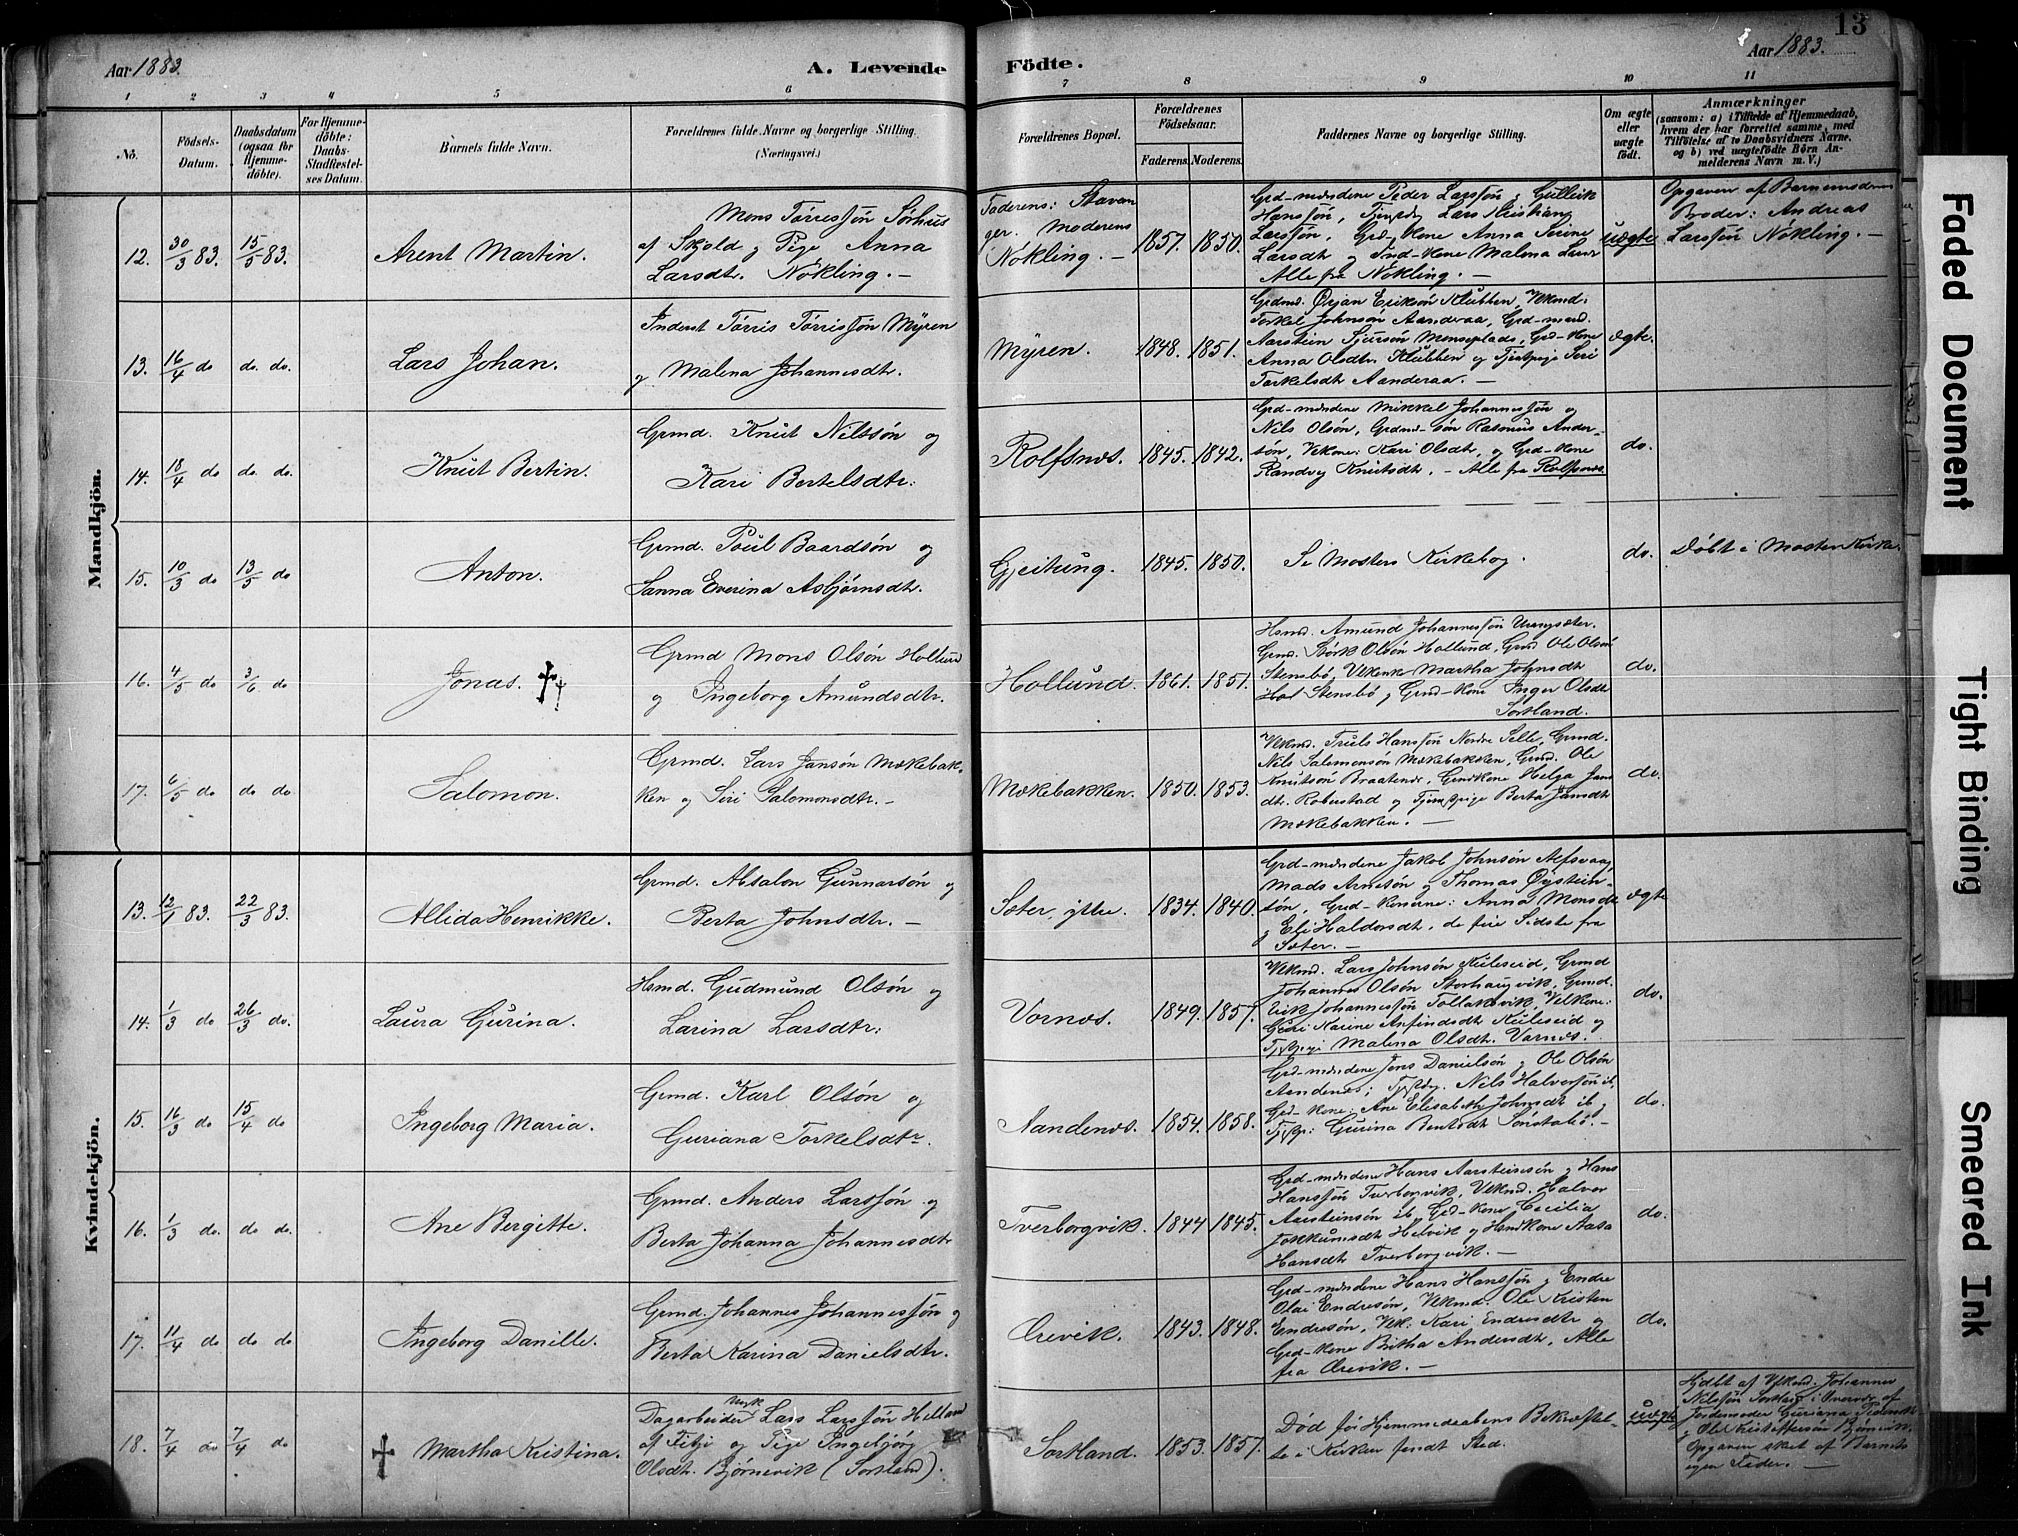 13
Aar 1883.
A. Levende
Födte.
Aar 1883.
1 2 3 4 5 6 7 8 9 10 11
No.
Födsels-
Datum.
Daabsdatum
(ogsaa for
Hjemme-
döbte).
For Hjemme-
döbte:
Daabs-
Stadfæstel-
ses Datum.
Barnets fulde Navn.
Forældrenes fulde Navne og borgerlige Stilling.
(Næringsvei.)
Forældrenes Bopæl.
Forældrenes
Födselsaar.
Faderens. Moderens.
Faddernes Navne og borgerlige Stilling.
Om ægte
eller
uægte
födt.
Anmærkninger
(saasom: a) i Tilfælde af Hjemmedaab,
hvem der har forrettet samme, med
Tilföielse af to Daabsvidners Navne.
og b) ved uægtefödte Börn An-
melderens Navn m. V.)
Mandkjön.
12. 30/3 83. 15/5 83.
Arent Martin.
Mons Tørresson Sørhus
af Skjold og Pige Anna
Larsdtr. Nökling. —
Faderens: Stavan
ger. Moderens
Nökling. —
1857. 1850.
Grd-mændene Peder Larssön, Gullik
Hanssön, Lars Kristian
Larssön, Grd-Kone Anna Serine
Larsdt og Ind-Kone Malena Lars
Alle fra Nökling. —
uægte
Opgaven af Barnemoderens
Broder: Andreas
Larssön Nökling. —
13. 16/4 do do. do.
Lars Johan.
Inderst Törris Törrissön Myren
og Malena Johannesdtr.
Myren.
1848. 1851.
Grdmd. Örjan Eriksön Klubben, Vkmd.
Torkel Johnsön Aanderaa, Grd-mand.
Aarstein Sjursön Monseplads, Grd-Kone
Anna Olsdtr. Klubben og Tjenstpige Seri
Torkelsdt Aanderaa. —
ægte.
14. 18/4 do do. do.
Knut Bertin.
Grmd. Knut Nilssön og
Kari Bertelsdtr:
Rolfsnes.
1845. 1842.
Grd-mændene Mikkel Johannessön og
Nils Olsön, Grdmd-sön Rasmus Ander-
sön, Vekone: Kari Olsdt, og Grd-Kone
Randvg Knutsdt. – Alle fra Rolfsnes.
do.
15. 10/3 do 13/5 do
Anton.
Grmd. Poul Baardsön og
Sanna Everina Asbjörnsdtr.
Gjeitung.
1845. 1850.
Se Mosters Kirkebog.
do.
Döbt i Moster Kirke.
16. 4/5 do 3/6 do
Jonas. †
Grmd Mons Olsön Hollund
og Ingeborg Amundsdtr.
Hollund.
1861. 1851.
Hsmd. Amund Johannessön
Grmd. Störk Olsön Hollund, Grmd Ole Olsön
Stensbö, Vekone Martha Johnsdt
Stensbö og Grmd-Kone Inger Olsdt
Sortland.
do.
17. 6/5 do do do
Salomon.
Grmd. Lars Jansön Mækebak-
ken og Siri Salomonsdtr. —
Mækebakken.
1850. 1853.
Vekmd. Truls Hanssön Nordre Selle, Grmd.
Nils Salomonsön Mækebakken, Grmd. Ole
Knutsön Braatenes, Grmdkone Helga Jans
dt. Roberstad og Tjenstpige Berta Jansdt
Mækebakken. —
do.
Kvindekjön.
13. 12/1 83. 22/3 83.
Allida Henrikke.
Grmd. Absalon Gunnarsön og
Berta Johnsdtr. —
Sæter, ytre.
1834. 1840.
Grd-mændene Jakob Johnsön Alfsvaag
Mads Arnesön og Thomas Öystein-
sön, Grd-Konerne: Anna Monsdt
og Eli Haldorsdt. de fire Sidste fra
Sæter. —
ægte
14. 1/3 do 26/3 do.
Laura Gurina.
Hsmd. Gudmund Olsön og
Larina Larsdtr:
Vornes.
1849. 1857.
Vekmd. Lars Johnsön Kuleseid, Grmd
Johannes Olsön Storhaugvik, Grmd.
Erik Johannessön Tollaksvik, Vekone:
Guri Karine Anfindsdt Kuleseid og
Malena Olsdt. Vornes.
do.
15. 16/3 do 15/4 do
Ingeborg Maria.
Grmd. Karl Olsön og
Guriana Torkelsdtr.
Aandenes.
1854. 1858.
Grd-mændene Jens Danielsön og Ole Olsön
Aandenes; Nils Halvorsön ib,
Grd-Kone: Ane Elisabeth Johnsdt ib og
Gurina Bentsdt Sönstabö. —
do.
16. 1/3 do. do do.
Ane Bergitte.
Grmd. Anders Larssön og
Berta Johanna Johannesdtr
Tverborgvik.
1844 1845.
Grd-mændene Hans Aarsteinsön og Hans
Hanssön Tverborgvik, Vekmd. Halvor
Aarsteinsön ib Grd-Kone Cecilia
Jokkumsdt Helvik og Hsmdkone Aasa
Hansdt Tverborgvik. —
do.
17. 11/4 do do do
Ingeborg Danille.
Grmd. Johannes Johannessön og
Berta Karina Danielsdtr.
Ærevik.
1843. 1848.
Grd-mændene Hans Hanssön og Endre
Olai Endresön, Vekmd. Ole Kristen
Endresön, Vek. Kari Endresdtr og
Grd-Kone Britha Andersdt, Alle
fra Ærevik. —
do.
18. 7/4 do 7/4 do
† Martha Kristina.
Dagarbeider Ungk Lars Larssön Helland
af Fitje og Pige Ingebjörg
Olsdtr. Bjørnevik (Sortland).
Sortland.
1853. 1857.
Död för Hjemmedaabens Bekræftel-
se i Kirken fandt Sted.
uægte
Hjdbt af Vekmd. Johannes
Nilssön Sortland i Overvær af
Jordemoder Guriana
og Ole Kristoffersön Björnevik,
Opgaven sket af Barnets
egen Fader. —
Faded Document
Tight Binding
Smeared Ink